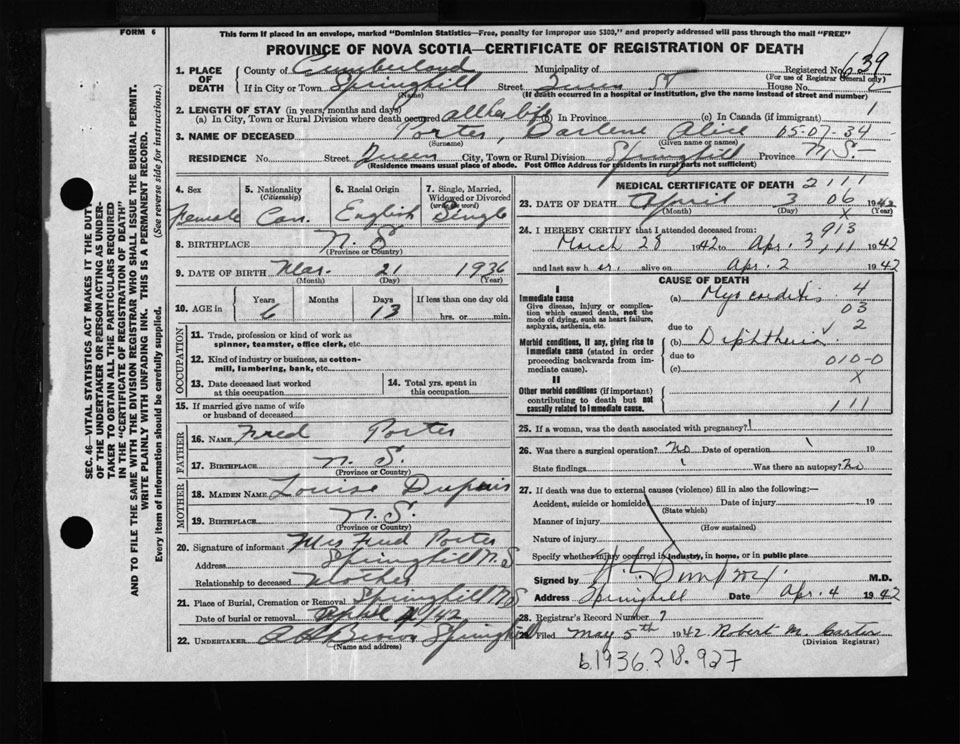 FORM 6
This form if placed in an envelope, marked "Dominion Statistics—Free, penalty for improper use $300," and properly addressed will pass through the mail "FREE"
PROVINCE OF NOVA SCOTIA—CERTIFICATE OF REGISTRATION OF DEATH
1. PLACE OF DEATH County of Cumberland Municipality of Registered No. 639
(For use of Registrar General only)
If in City or Town Springhill Street Queen St House No.
(Name) (If death occurred in a hospital or institution, give the name instead of street and number)
2. LENGTH OF STAY (in years, months and days) 1
(a) In City, Town or Rural Division where death occurred all her life (b) In Province (c) In Canada (if immigrant)
3. NAME OF DECEASED Porter, Darlene Alice 05-07-34-
(Surname) (Given name or names)
RESIDENCE No. Street Queen City, Town or Rural Division Springhill Province N.S.-
(Residence means usual place of abode. Post Office Address for residents in rural parts not sufficient)
4. Sex 5. Nationality (Citizenship) 6. Racial Origin 7. Single, Married, Widowed or Divorced (write the word)
Female Can. English Single
8. BIRTHPLACE N. S
(Province or Country)
9. DATE OF BIRTH Mar. 21 1936
(Month) (Day) (Years)
10. AGE in Years Months Days If less than one day old
6 13 hrs. or min.
OCCUPATION
11. Trade, profession or kind of work as spinner, teamster, office clerk, etc.
12. Kind of industry or business, as cotton-mill, lumbering, bank, etc.
13. Date deceased last worked at this occupation
14. Total yrs. spent in this occupation
15. If married give name of wife or husband of deceased
FATHER
16. NAME Fred Porter
17. BIRTHPLACE N. S.
(Province or Country)
MOTHER
18. MAIDEN NAME Louise Dupuis
19. BIRTHPLACE N.S.
(Province or Country)
20. Signature of informant Mrs Fred Porter
Address Springhill N.S
Relationship to deceased Mother
21. Place of Burial, Cremation or Removal Springhill N.S
Date of burial or removal April 4/42
22. UNDERTAKER Brown Springhill
(Name and address)
MEDICAL CERTIFICATE OF DEATH 2111
23. DATE OF DEATH April 3 06 1942
(Month) (Day) X (Year)
24. I HEREBY CERTIFY that I attended deceased from: 913
March 28 1942 to Apr. 3, 11 1942
and last saw her. alive on Apr. 2 1942
CAUSE OF DEATH
I
Immediate cause
Give disease, injury or complication which caused death, not the mode of dying, such as heart failure, asphyxia, asthenia, etc.
(a) Myocarditis 4
03
due to 2
Morbid conditions, if any, giving rise to immediate cause (stated in order proceeding backwards from immediate cause).
(b) Diphtheria
due to 010-0
(c)
X
II
Other morbid conditions (if important) contributing to death but not causally related to immediate cause.
111
25. If a woman, was the death associated with pregnancy?
26. Was there a surgical operation? No Date of operation 19
State findings Was there an autopsy? No
27. If death was due to external causes (violence) fill in also the following:—
Accident, suicide or homicide Date of injury 19
(State which)
Manner of injury
(How sustained)
Nature of injury
Specify whether injury occurred in industry, in home, or in public place
Signed by M.D.
Address Springhill Date Apr. 4 1942
28. Registrar's Record Number 7
29. Filed May 5th 1942 Robert M. Carter
(Division Registrar)
b.1936.218.927
SEC. 46—VITAL STATISTICS ACT MAKES IT THE DUTY
OF THE UNDERTAKER OR PERSON ACTING AS UNDER-
TAKER TO OBTAIN ALL THE PARTICULARS REQUIRED
IN THE "CERTIFICATE OF REGISTRATION OF DEATH"
AND TO FILE THE SAME WITH THE DIVISION REGISTRAR WHO SHALL ISSUE THE BURIAL PERMIT.
WRITE PLAINLY WITH UNFADING INK. THIS IS A PERMANENT RECORD.
Every item of information should be carefully supplied. (See reverse side for instructions.)